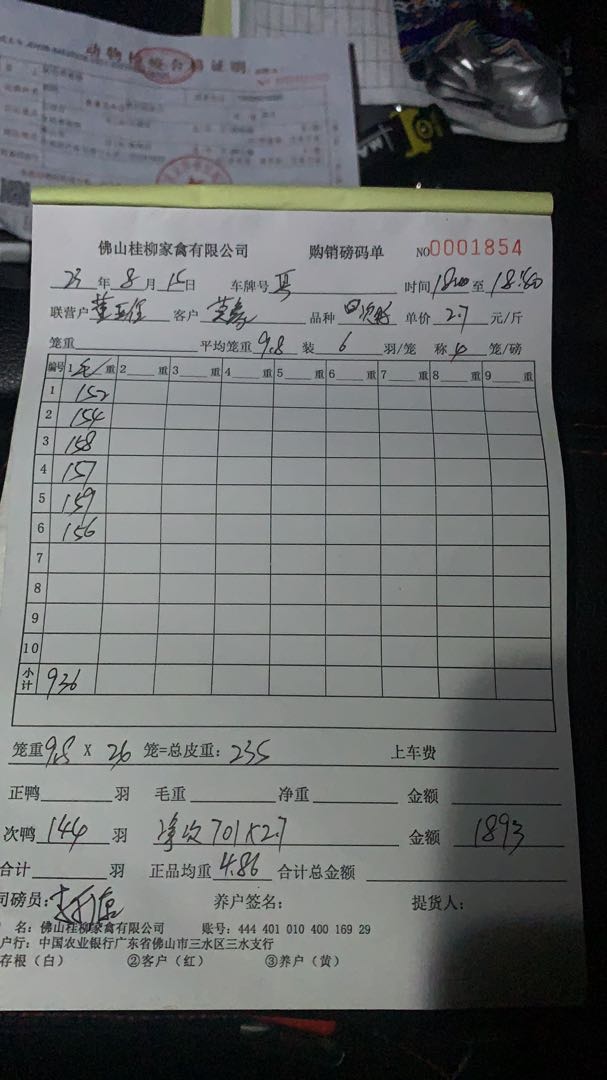 动物检疫合格证明
佛山桂柳家禽有限公司 购销磅码单 NO0001854
23年8月15日 车牌号 时间18:00至18:40
联营户 客户 品种 单价2.7元/斤
笼重 平均笼重9.8 装6羽/笼 称4笼/磅
编号 1毛重 2重 3重 4重 5重 6重 7重 8重 9重
1 152
2 154
3 158
4 157
5 159
6 156
7
8
9
10
小计 936
笼重9.8 X 26 笼=总皮重:235 上车费
正鸭 羽 毛重 净重 金额
次鸭144羽 净次701×2.7 金额 1893
合计 羽 正品均重4.86 合计总金额
司磅员: 养户签名: 提货人:
名:佛山桂柳家禽有限公司 账号:444 401 010 400 169 29
户行:中国农业银行广东省佛山市三水区三水支行
存根(白) ②客户(红) ③养户(黄)